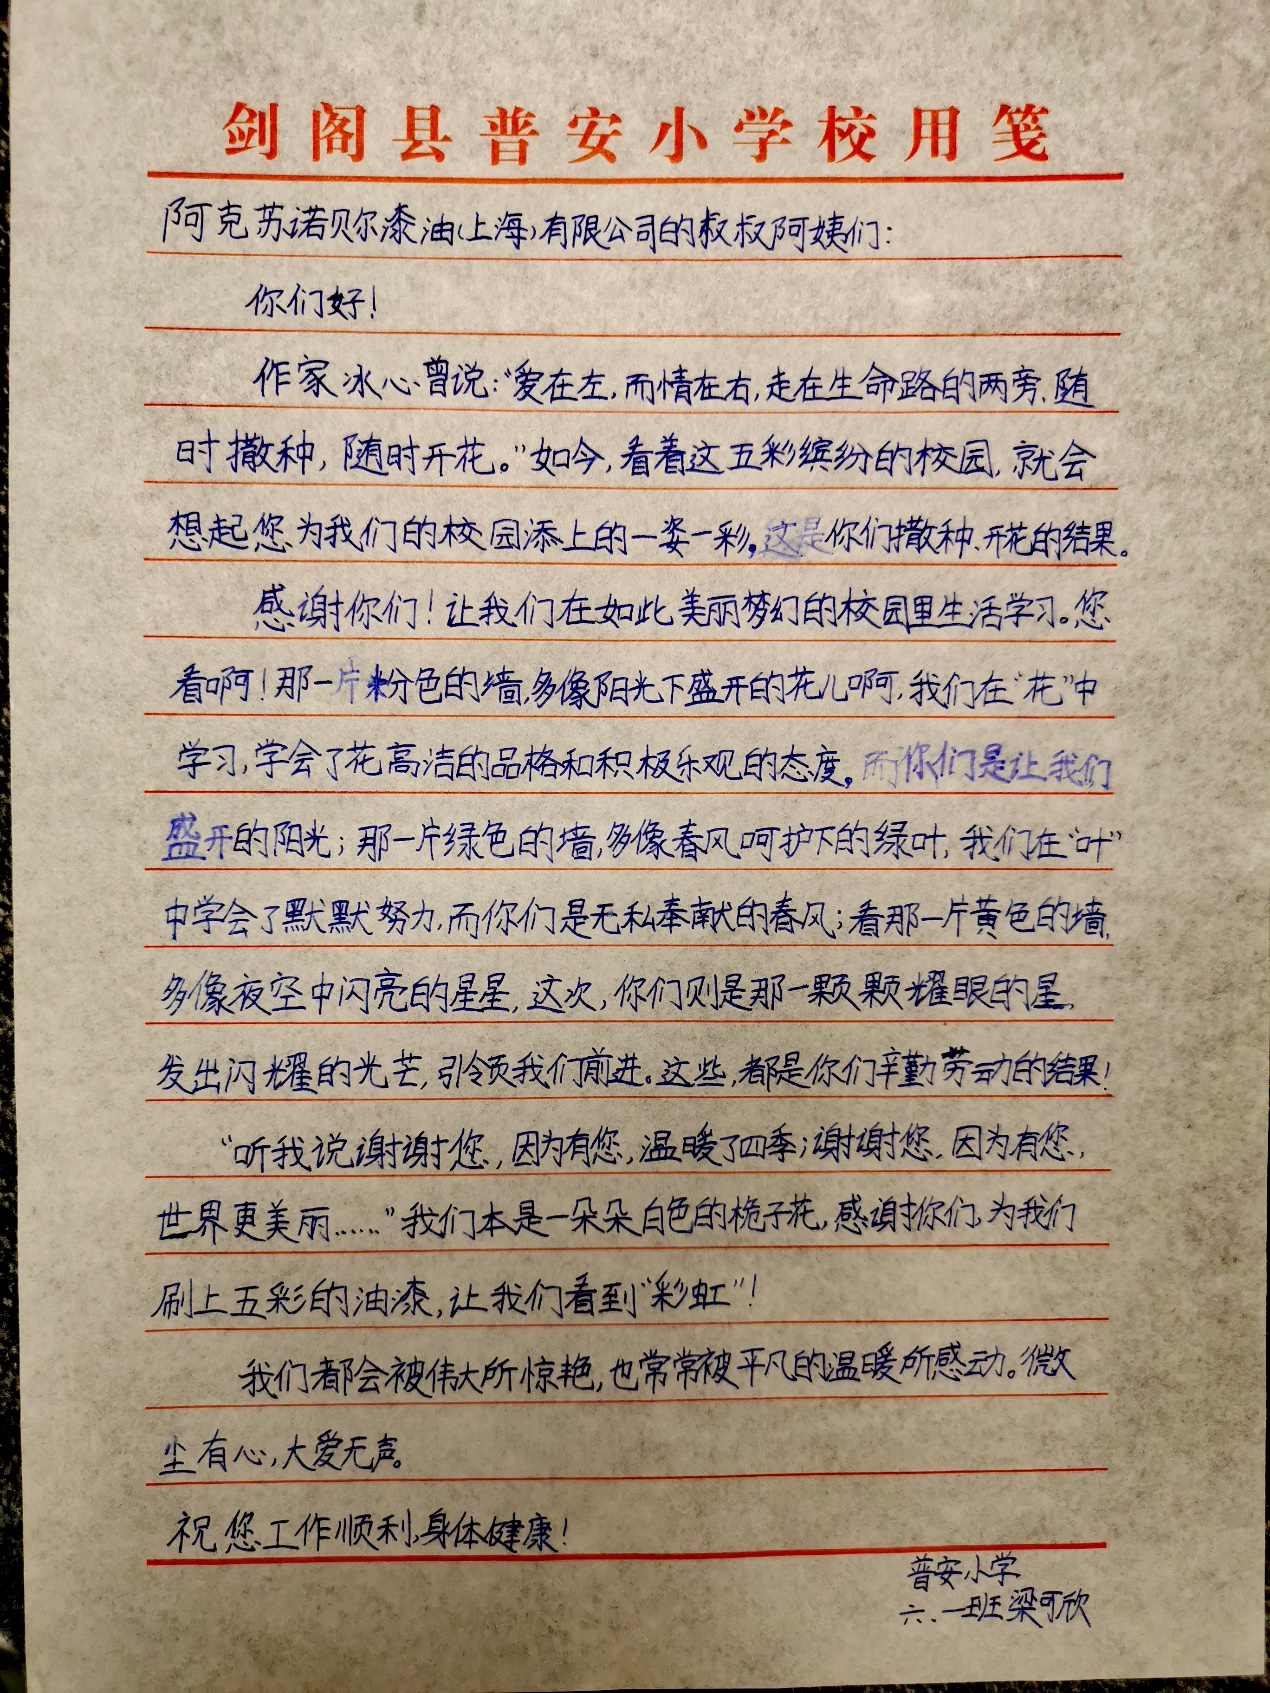 剑阁县普安小学校用笺
阿克苏诺贝尔漆油(上海)有限公司的叔叔阿姨们：
你们好！
作家冰心曾说：“爱在左，而情在右，走在生命路的两旁，随
时撒种，随时开花。”如今，看着这五彩缤纷的校园，就会
想起您为我们的校园添上的一姿一彩，这是你们撒种、开花的结果。
感谢你们！让我们在如此美丽梦幻的校园里生活学习。您
看啊！那一片粉色的墙，多像阳光下盛开的花儿啊，我们在“花”中
学习，学会了花高洁的品格和积极乐观的态度，而你们是让我们
盛开的阳光；那一片绿色的墙，多像春风呵护下的绿叶，我们在“叶”
中学会了默默努力，而你们是无私奉献的春风；看那一片黄色的墙，
多像夜空中闪亮的星星，这次，你们则是那一颗颗耀眼的星，
发出闪耀的光芒，引领我们前进。这些，都是你们辛勤劳动的结果！
“听我说谢谢您，因为有您，温暖了四季；谢谢您，因为有您，
世界更美丽……”我们本是一朵朵白色的栀子花，感谢你们，为我们
刷上五彩的油漆，让我们看到“彩虹”！
我们都会被伟大所惊艳，也常常被平凡的温暖所感动。微
尘有心，大爱无声。
祝您工作顺利，身体健康！
普安小学
六．一班梁可欣